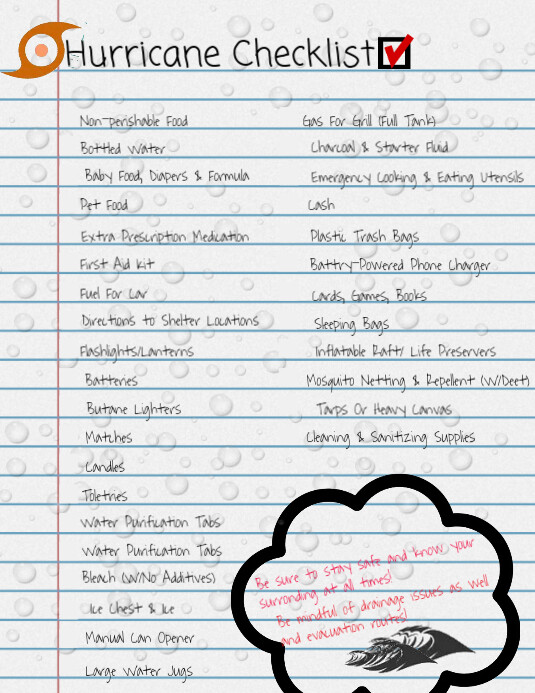 Hurricane Checklist
Non-perishable Food
Bottled Water
Baby Food, Diapers & Formula
Pet Food
Extra Prescription Medication
First Aid Kit
Fuel For Car
Directions to Shelter Locations
Flashlights/Lanterns
Batteries
Butane Lighters
Matches
Candles
Toletries
Water Purification Tabs
Water Purification Tabs
Bleach (W/No Additives)
Ice Chest & Ice
Manual Can Opener
Large Water Jugs
Gas For Grill (Full Tank)
Charcoal & Starter Fluid
Emergency Cooking & Eating Utensils
Cash
Plastic Trash Bags
Battry-Powered Phone Charger
Cards, Games, Books
Sleeping Bags
Inflatable Raft/ Life Preservers
Mosquito Netting & Repellent (W/Deet)
Tarps Or Heavy Canvas
Cleaning & Sanitizing Supplies
Be sure to stay safe and know your
surronding at all times!
Be mindful of drainage issues as well
and evacuation routes!